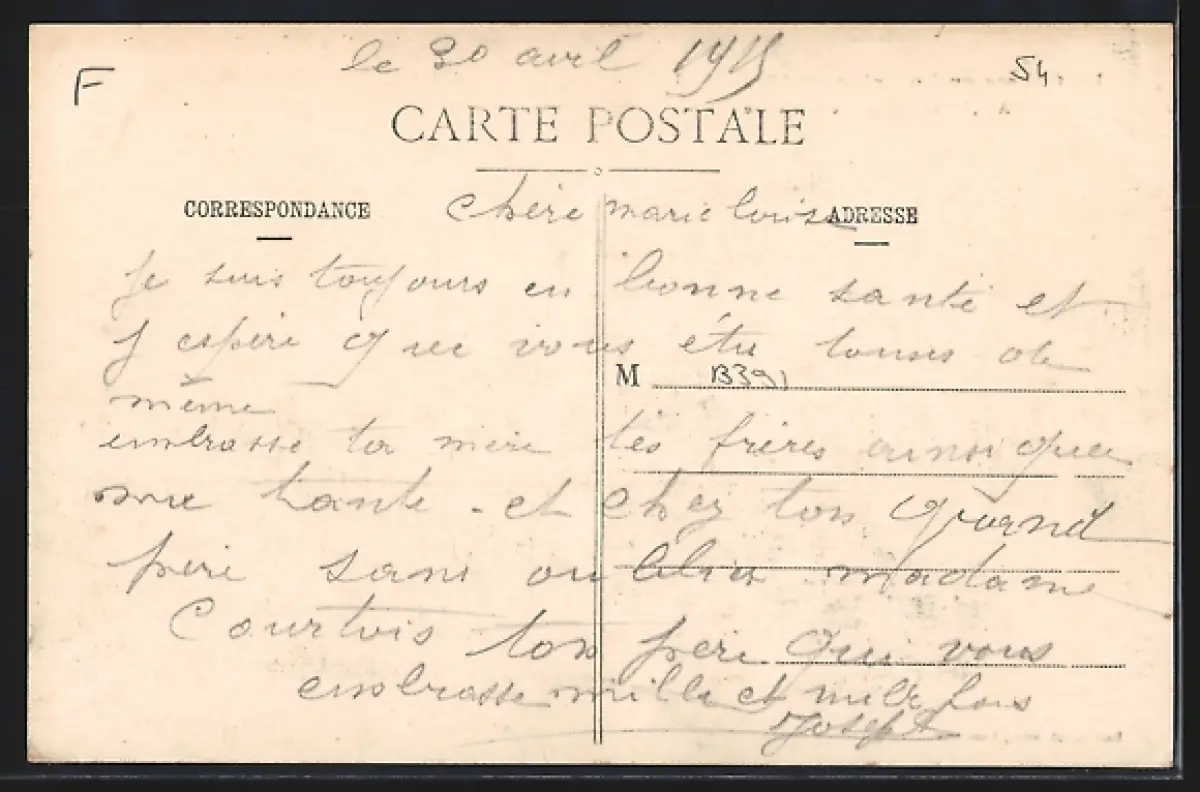 le 30 avril 1915
F
54
CARTE POSTALE
CORRESPONDANCE
ADRESSE
Chère marie louise
Je suis toujours en bonne santé et
j espère que vous ète tousss de
même
M 13391
embrasse ta mère tes frères ainsi que
tante et chez ton Grand
père sans oublier madame
Courtois ton père qui vous
embrasse mille et mille fois
Joseph